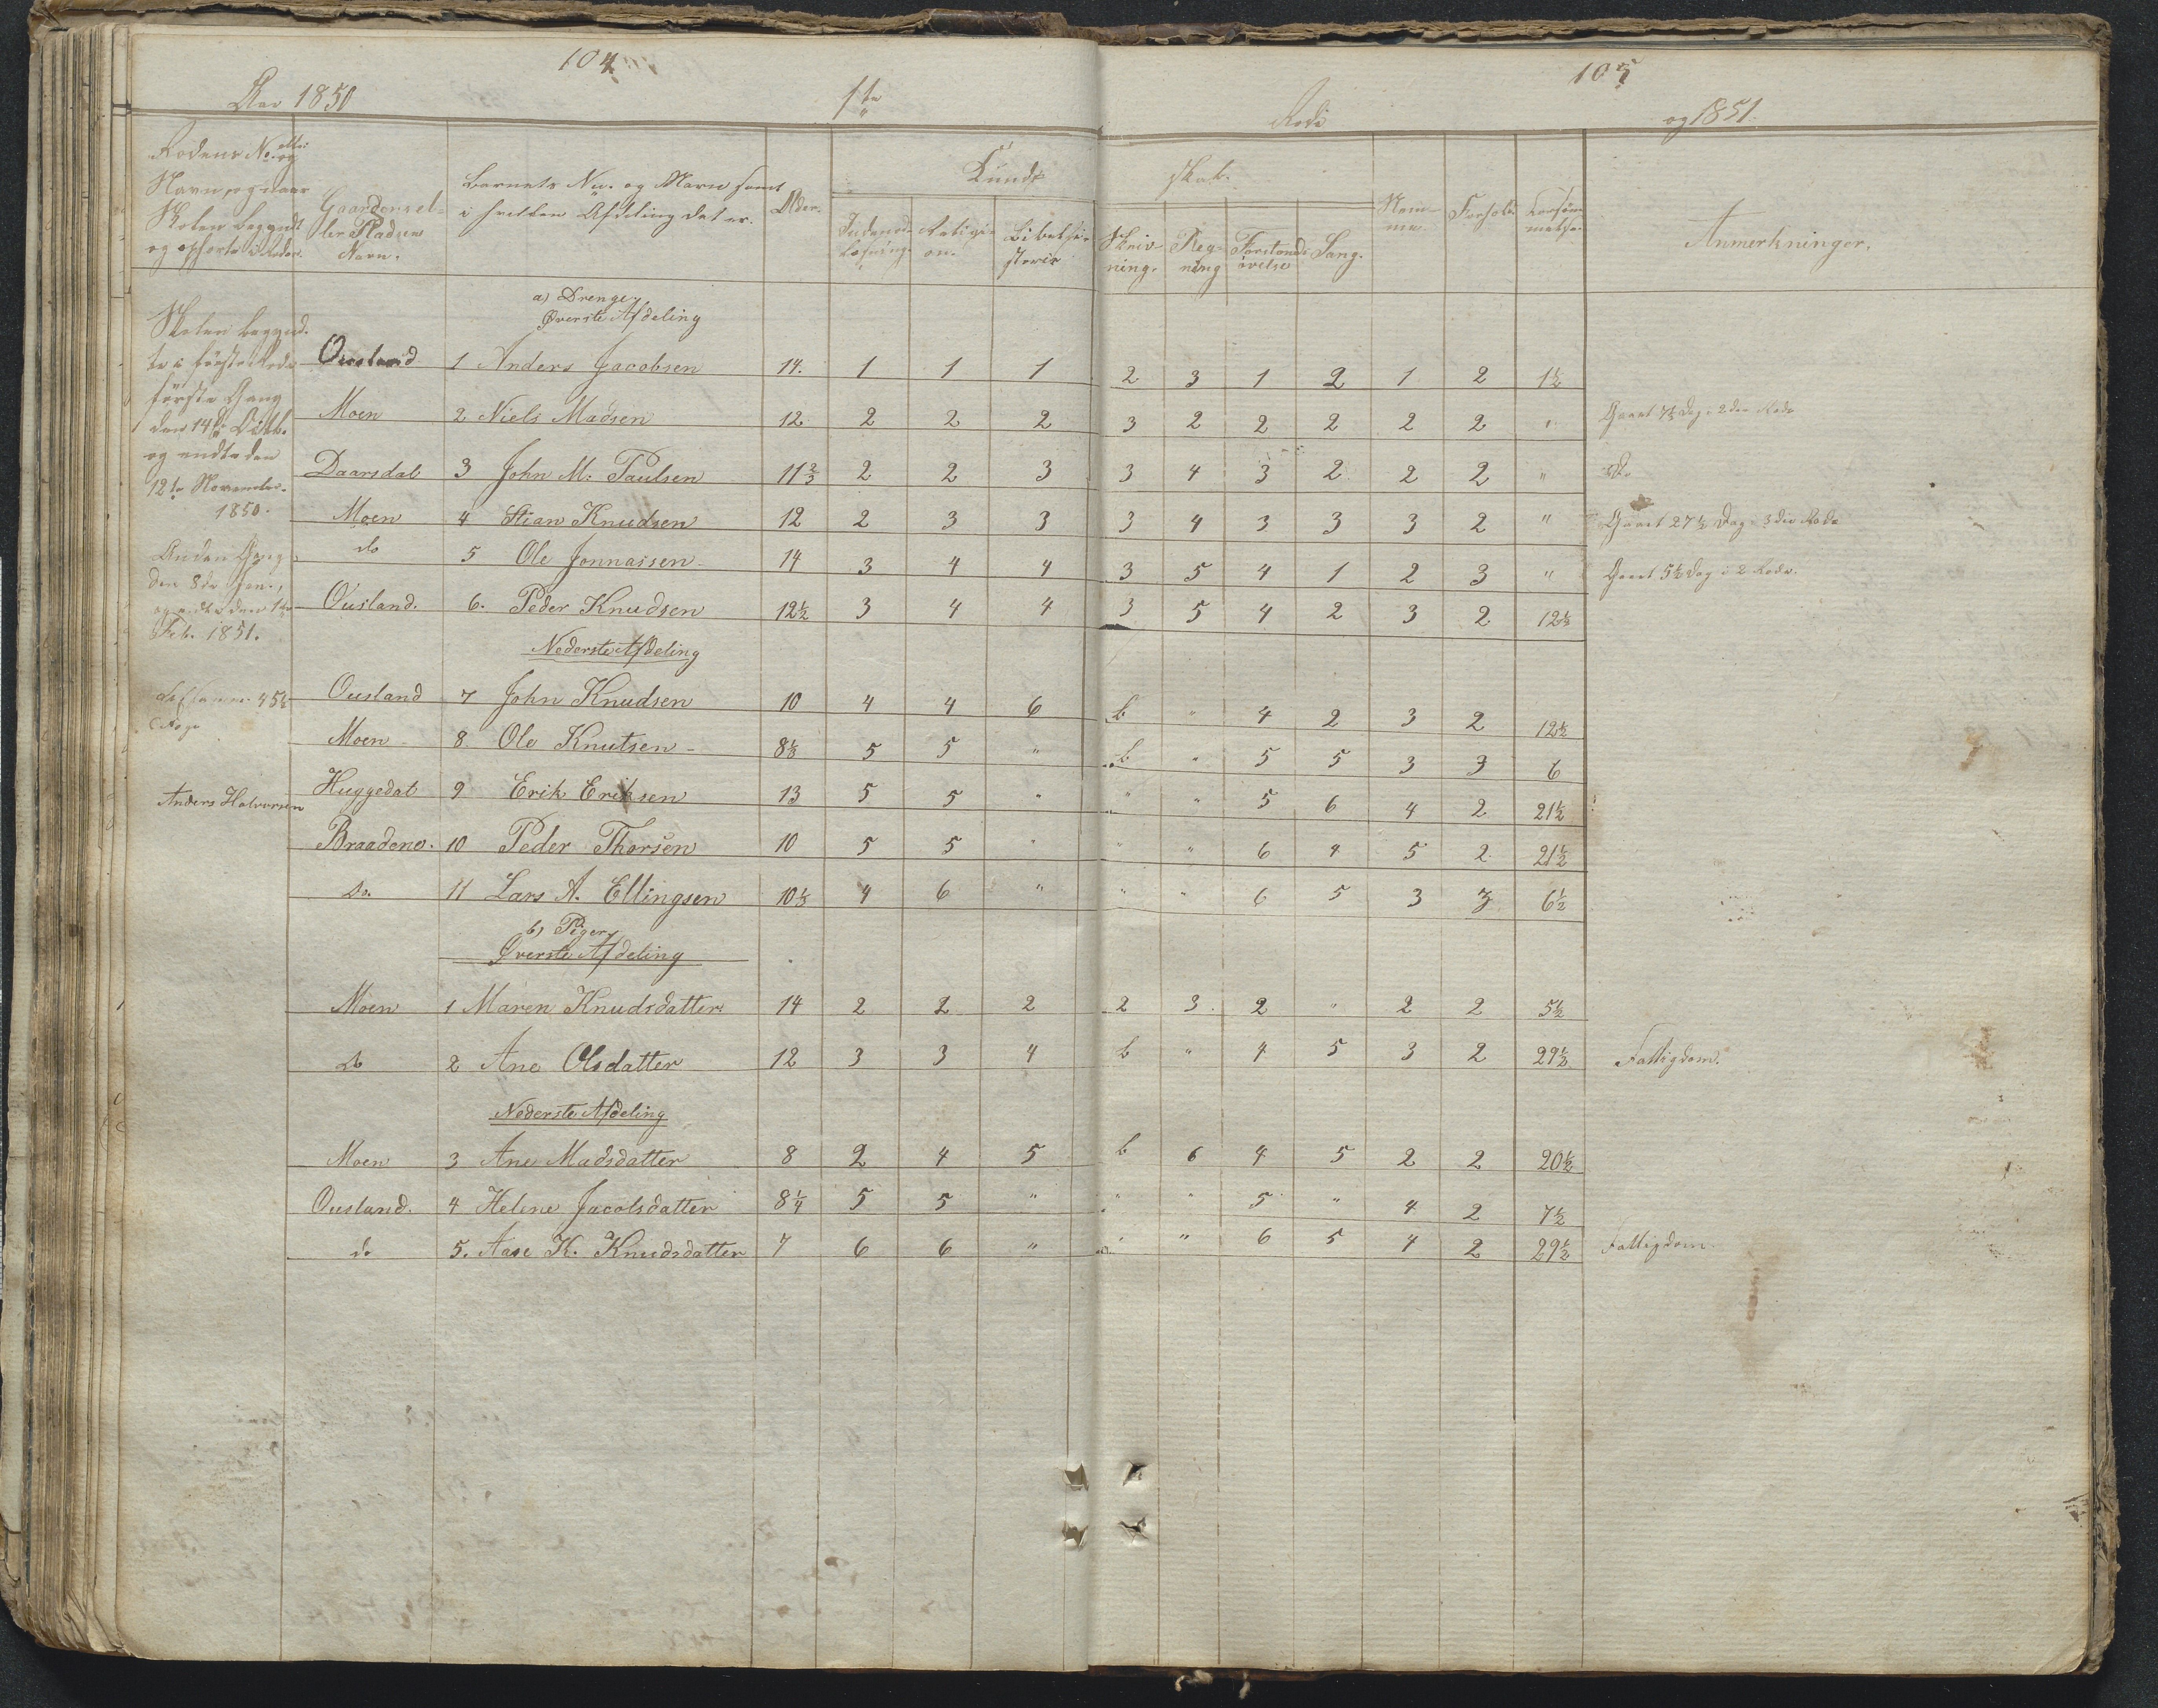 104
Aar 1850
1ste
105
Rode
og 1851.
Rodens No. eller
Navn, og naar
Skolen begyndt
og ophørte i Roden.
Gaardens el-
ler Pladsens
Navn.
Barnets Nu. og Navn samt
i hvilken Afdeling det er.
Alder.
Kund-
skab.
Indenad-
læsning.
Religi-
on.
Bibelhi-
storie
Skriv-
ning.
Reg-
ning
Forstands-
øvelse
Sang.
Nem-
me.
Forhold.
Forsøm-
melse.
Anmerkninger.
a) Drenge,
Øverste Afdeling
Skolen begynd-
te i første Rode
første Gang
den 14de Octb.
og endte den
12te November
1850.
Anden Gang
den 8de Jan.,
og endte den 1ste
Feb. 1851.
45½
Dage
Anders Halvorsen
Ousland 1 Anders Jacobsen 14. 1 1 1 2 3 1 2 1 2 1½
Moen 2 Niels Madsen 12 2 2 2 3 2 2 2 2 2 " Gaaet 7½ Dag i 2den Rode
Daarsdal 3 John M. Paulsen 11⅔ 2 2 3 3 4 3 2 2 2 " Do.
Moen 4 Stian Knudsen 12 2 3 3 3 4 3 3 3 2 " Gaaet 27½ Dag i 3die Rode
do 5 Ole Jonnassen 14 3 4 4 3 5 4 1 2 3 " Gaaet 5½ Dag i 2 Rode.
Ousland. 6. Peder Knudsen 12½ 3 4 4 3 5 4 2 3 2 12½
Nederste Afdeling
Ousland 7 John Knudsen 10 4 4 6 b " 4 2 3 2 12½
Moen 8 Ole Knutsen 8⅓ 5 5 " b " 5 5 3 3 6
Huggedal 9 Erik Eriksen 13 5 5 " " " 5 6 4 2 21½
Braadene. 10 Peder Thorsen 10 5 5 " " " 6 4 5 2 21½
Do. 11 Lars A. Ellingsen 10⅓ 4 6 " " " 6 5 3 3 6½
b) Piger,
Øverste Afdeling
Moen 1 Maren Knudsdatter 14 2 2 2 2 3 2 " 2 2 5½
Do 2 Ane Olsdatter 12 3 3 4 b " 4 5 3 2 29½ Fattigdom.
Nederste Afdeling
Moen 3 Ane Madsdatter 8 2 4 5 b 6 4 5 2 2 20½
Ousland. 4 Helene Jacobsdatter 8¼ 5 5 " " " 5 " 4 2 7½
do 5. Aase K. Knudsdatter 7 6 6 " " " 6 5 4 2 29½ Fattigdom.